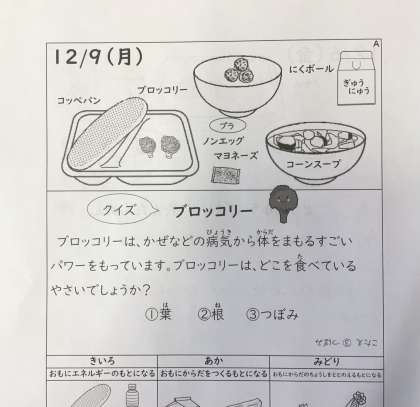 12/9(月)
A
コッペパン
ブロッコリー
にくボール
ぎゅう
にゅう
プラ
ノンエッグ
マヨネーズ
コーンスープ
クイズ
ブロッコリー
ブロッコリーは、かぜなどの病気から体をまもるすごい
びょうき からだ
パワーをもっています。ブロッコリーは、どこを食べている
た
やさいでしょうか?
①葉 ②根 ③つぼみ
は ね
こたえ ③ つぼみ
きいろ あか みどり
おもにエネルギーのもとになる おもにからだをつくるもとになる おもにからだのちょうしをととのえるもとになる